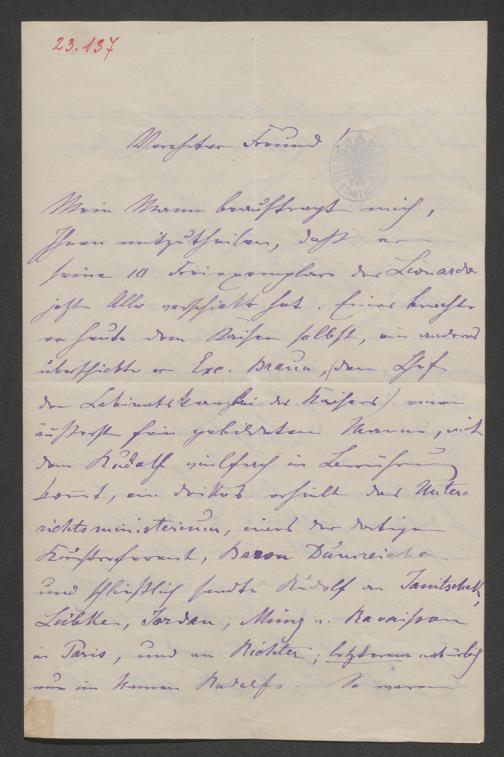 23.137
Verehrter Freund!
Mein Mann beauftragt mich,
Ihnen mitzutheilen, daß er
seine 10 Freiexemplare des Leonardo
jetzt Alle verschickt hat. Eines brachte
er heute dem Kaiser selbst, ein anderes
überschickte er Exc. Braun, (dem Chef
der Cabinetskanzlei des Kaisers) einem
äußerst fein gebildeten Manne, mit
dem Rudolf vielfach in Berührung
kommt, ein drittes erhielt das Unter-
richtsministerium, eines der dortige
Kunstreferent, Baron Dumreicher
und schließlich sandte Rudolf an Janitschek,
Lübke, Jordan, Müntz u. Ravaisson
in Paris, und an Richter; letzterem natürlich
nur im Namen Rudolfs. So waren